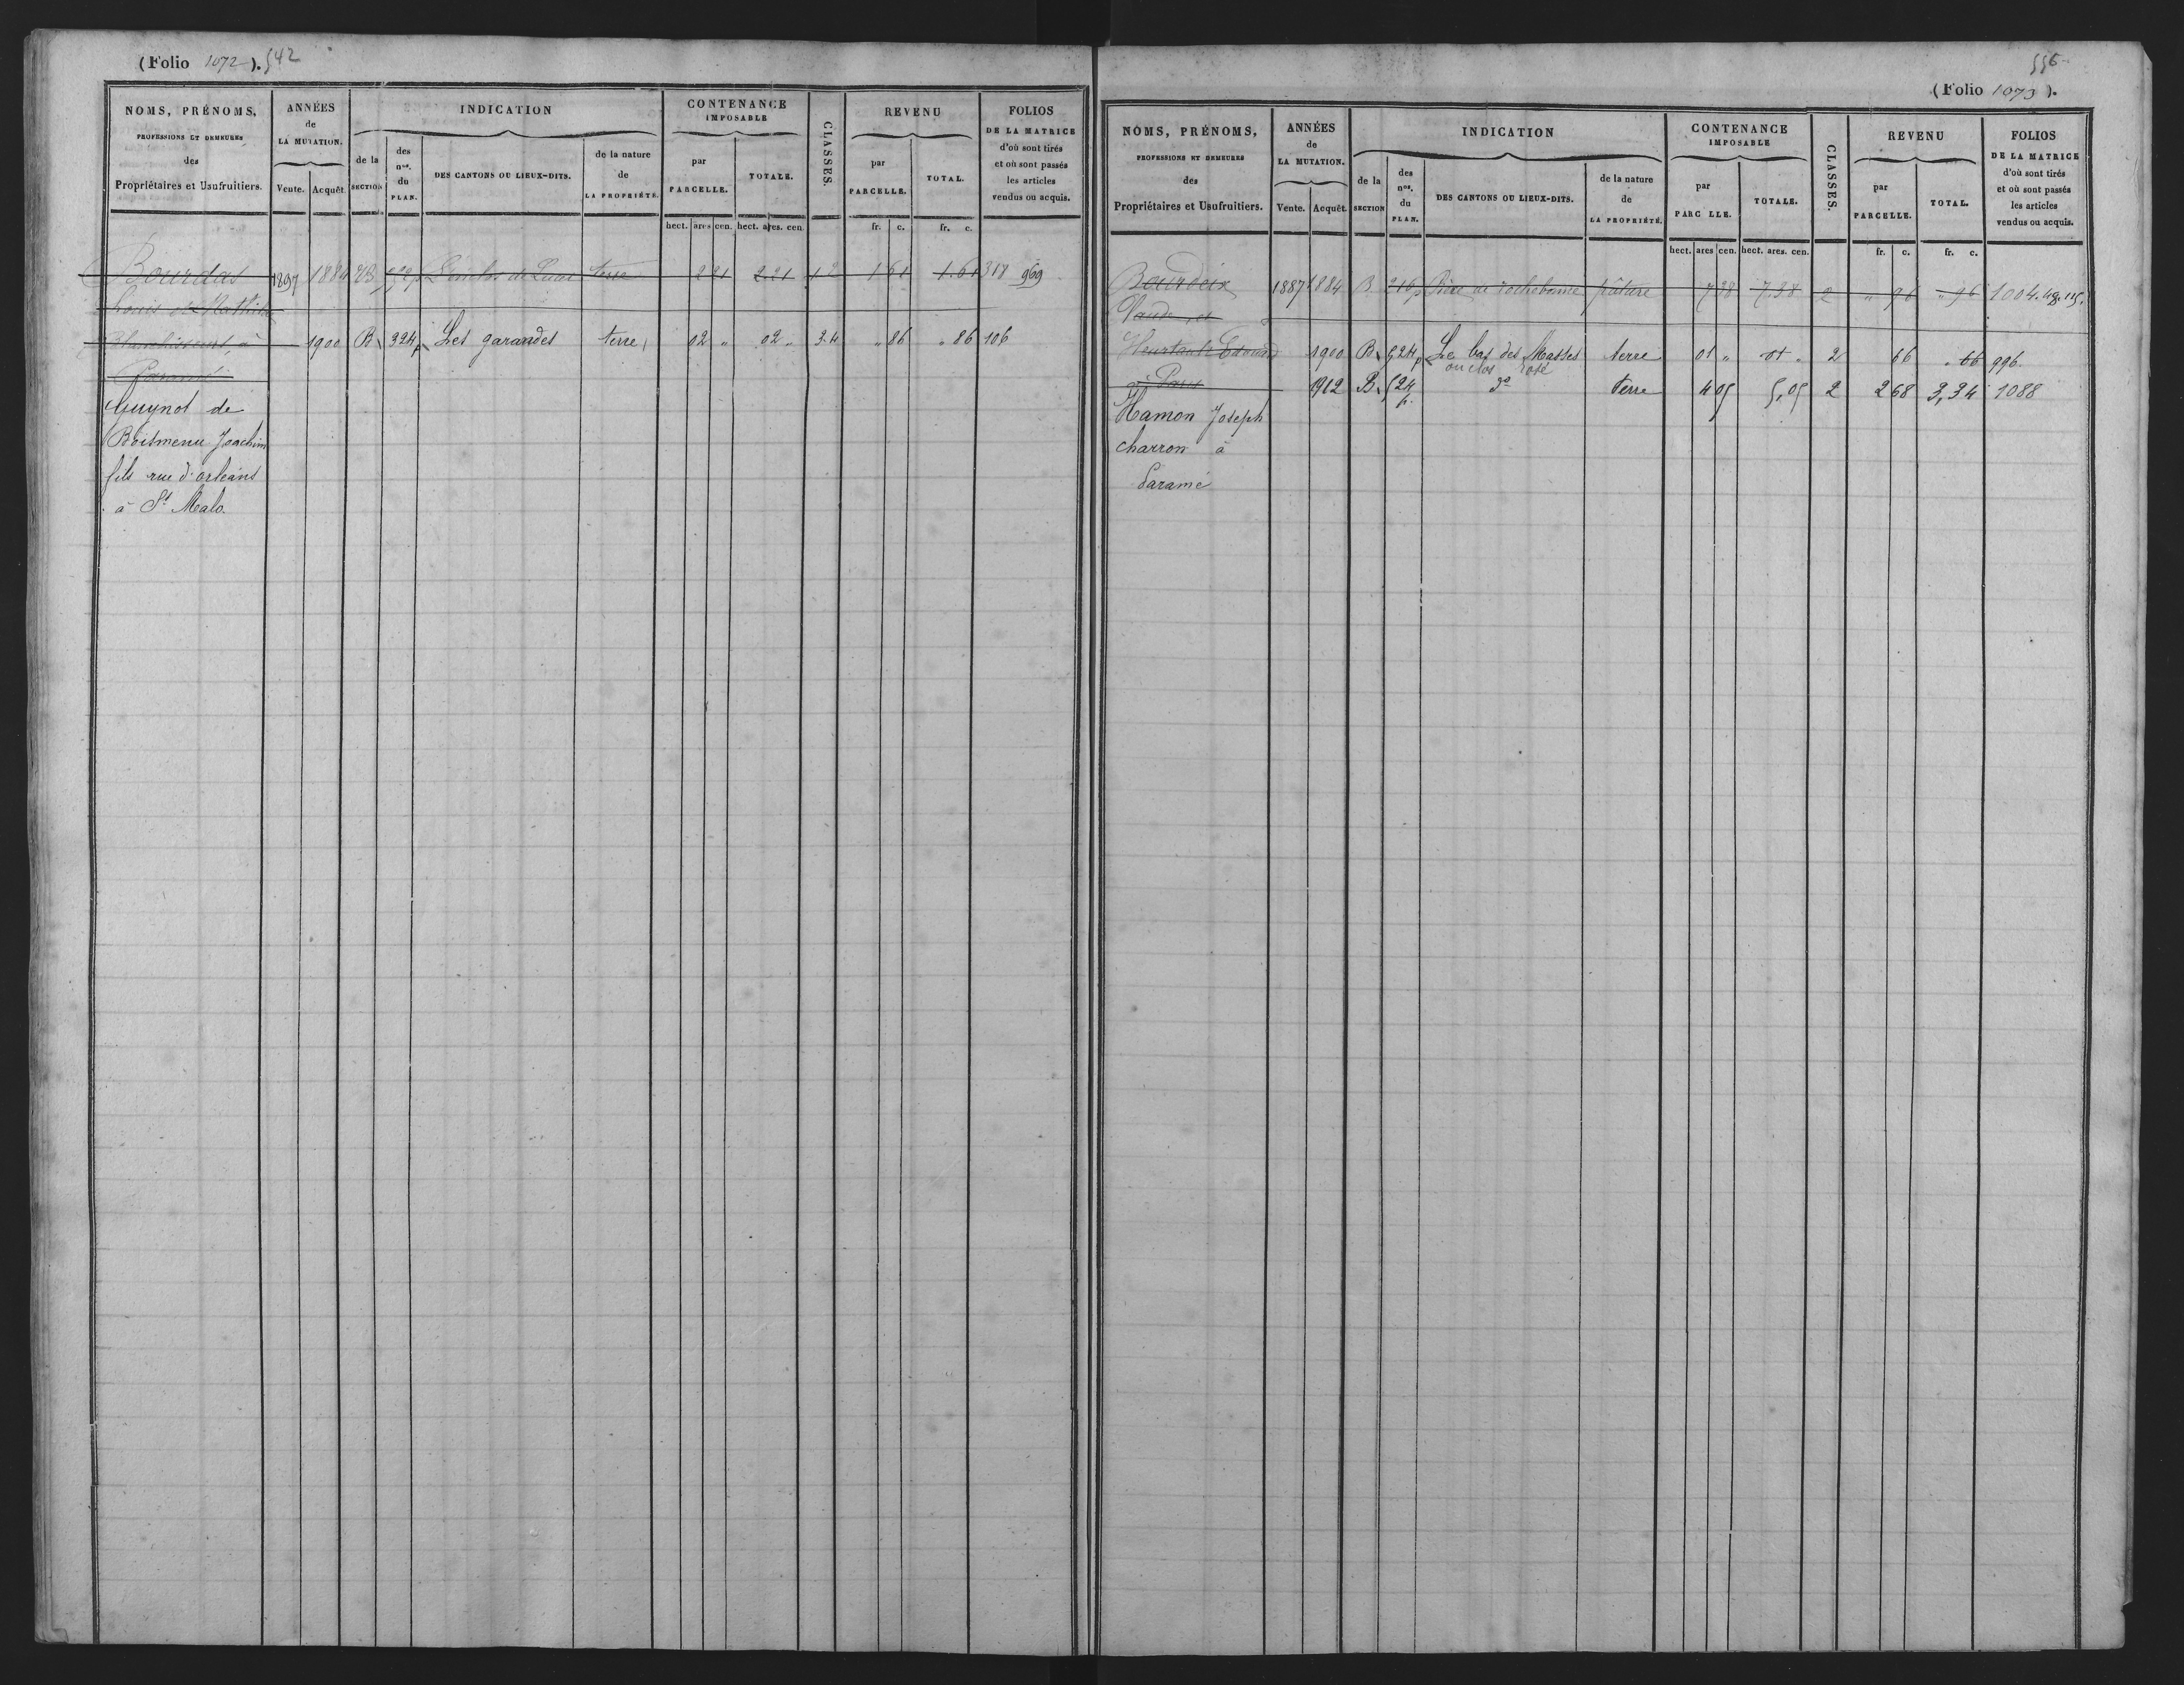 (Folio 1072). 542
NOMS, PRÉNOMS, PROFESSIONS ET DEMEURES des Propriétaires et Usufruitiers.
ANNÉES de LA MUTATION. Vente. Acquêt.
INDICATION de la SECTION des nos. du PLAN. DES CANTONS OU LIEUX-DITS. de la nature de LA PROPRIÉTÉ.
CONTENANCE IMPOSABLE par PARCELLE. TOTALE.
CLASSES.
REVENU par PARCELLE. TOTAL.
FOLIOS DE LA MATRICE d'où sont tirés et où sont passés les articles vendus ou acquis.
hect. ares cen. hect. ares. cen. fr. c. fr. c.
Bourdas 1897 1884 B terre 2 21 2.21 1 61 1.61 317 969
Louis
à 1900 B 324p Les garandes terre 02 " 02 " 2.4 " 86 " 86 106
Paramé
Guynot de
Boismenu Joachim
fils rue d'orléans
à St Malo.
556
(Folio 1073).
NOMS, PRÉNOMS, PROFESSIONS ET DEMEURES des Propriétaires et Usufruitiers.
ANNÉES de LA MUTATION. Vente. Acquêt.
INDICATION de la SECTION des nos. du PLAN. DES CANTONS OU LIEUX-DITS. de la nature de LA PROPRIÉTÉ.
CONTENANCE IMPOSABLE par PARC LLE. TOTALE.
CLASSES.
REVENU par PARCELLE. TOTAL.
FOLIOS DE LA MATRICE d'où sont tirés et où sont passés les articles vendus ou acquis.
hect. ares cen. hect. ares. cen. fr. c. fr. c.
Bourdeix 1887 1884 B 216p de rochebonne pâture 7 38 7.38 2 " 96 " 96 1004.
Heurtault Edouard 1900 B 524p Le bas des Masses terre 01 " 01 " 2 66 " 66 996
ou clos
à Paris 1912 B 524 p. do terre 4 05 5,05 2 2 68 3,34 1088
Hamon Joseph
charron à
Paramé